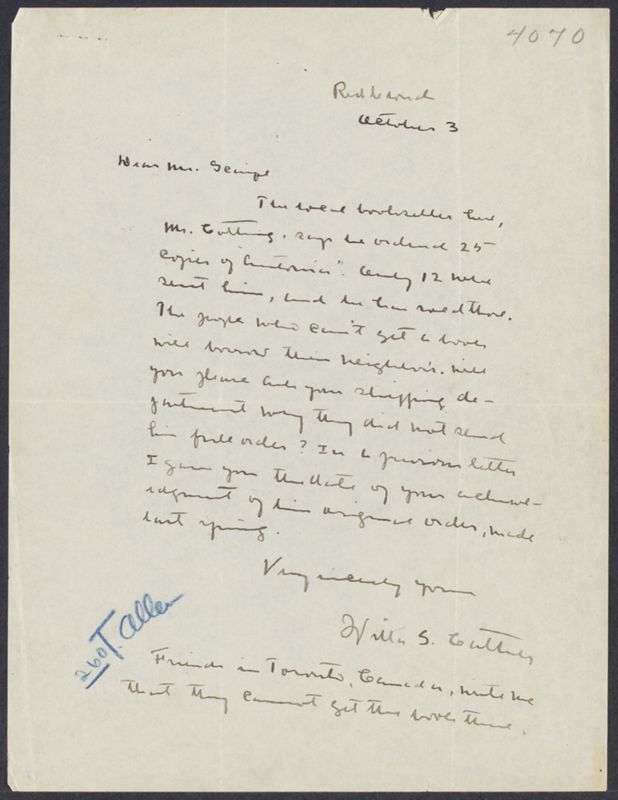 4070
Red Cloud
October 3
Dear Mr. Scaife
The local bookseller here,
Mr. Cotting, says he ordered 25
copies of "Antonia". Only 12 were
sent him, and he has sold those.
The people who can't get a book
will borrow their neighbor's. Will
you please ask your shipping de-
partment why they did not send
his full order? In a previous letter
I gave you the date of your acknowl-
edgment of his original order, made
last spring.
Very sincerely yours
Willa S. Cather
260 T. Allen
Friends in Toronto, Canada, write me
that they cannot get the book there.